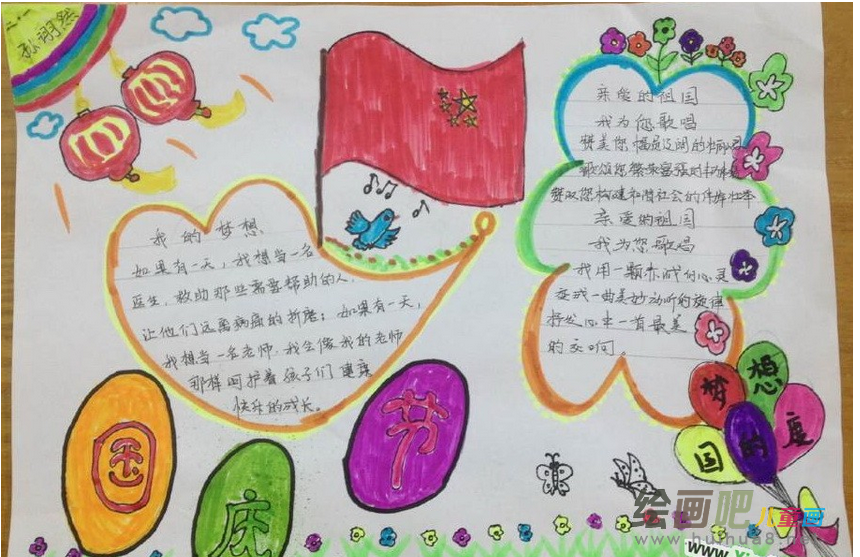 孙诩然
我的梦想
如果有一天，我想当一名
医生，救助那些需要帮助的人，
让他们远离病痛的折磨；如果有一天，
我想当一名老师，我会像我的老师
那样呵护着孩子们健康
快乐的成长。
亲爱的祖国
我为您歌唱
赞美您幅员辽阔的
歌颂您繁荣富强的
赞叹您构建和谐社会的伟岸壮举
亲爱的祖国
我为您歌唱
我用一颗赤诚的心灵
变成一曲美妙动听的旋律
抒发心中一首最美
的交响。
国
庆
节
梦想
国的度
绘画吧儿童画
www.huihua8.net
www